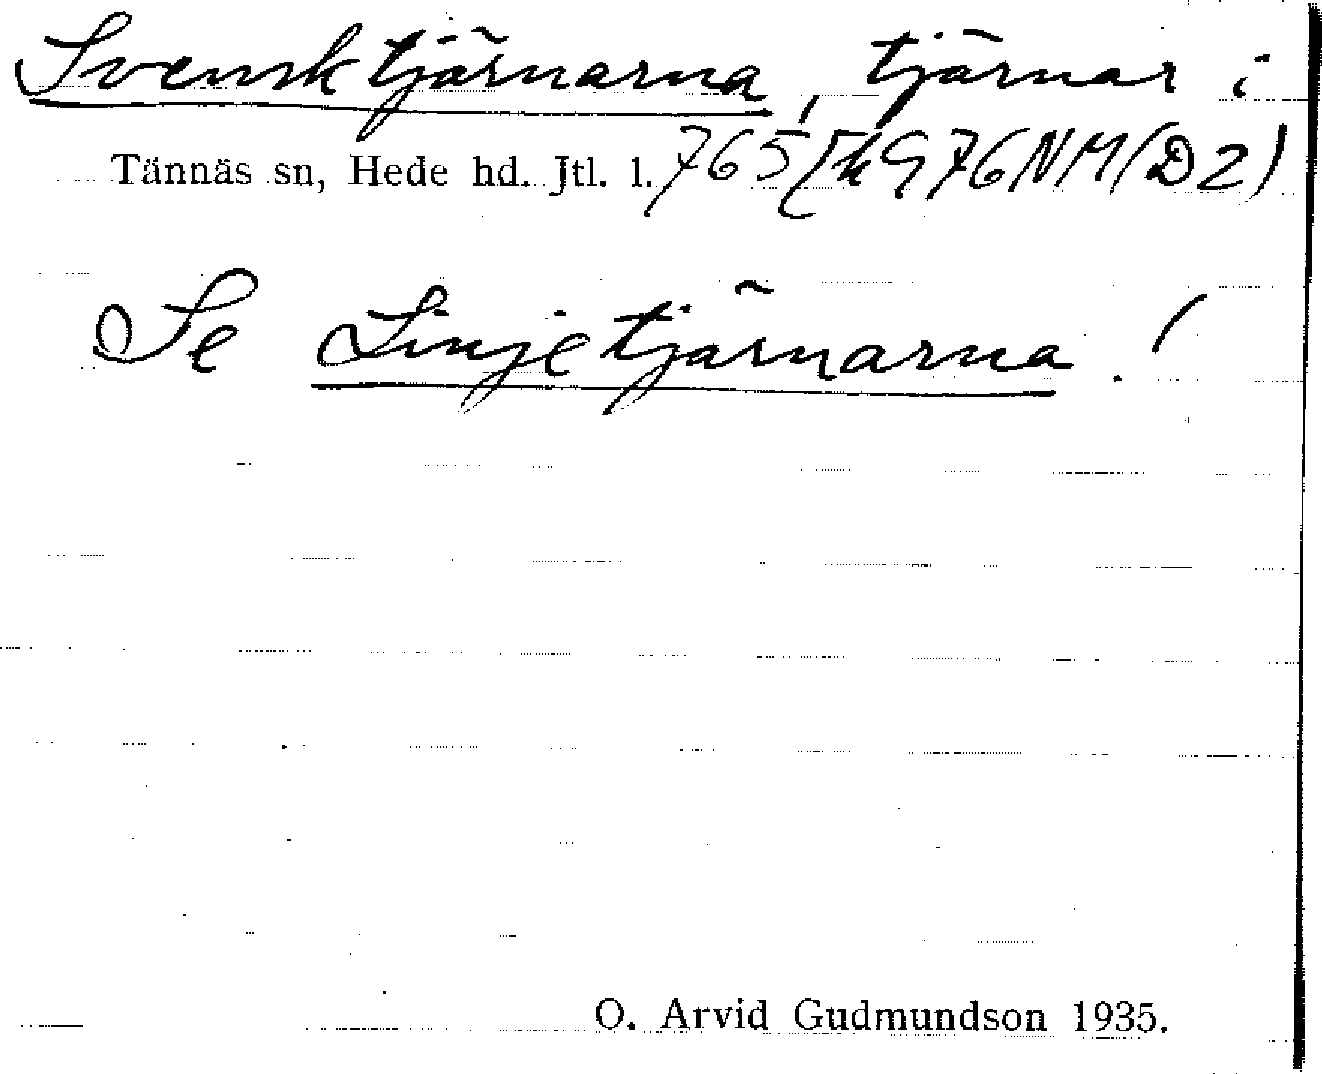 Svensktjärnarna, tjärnar i
Tännäs sn, Hede hd. Jtl. l. 765 976NM(D2)
Se Linjetjärnarna!
O. Arvid Gudmundson 1935.